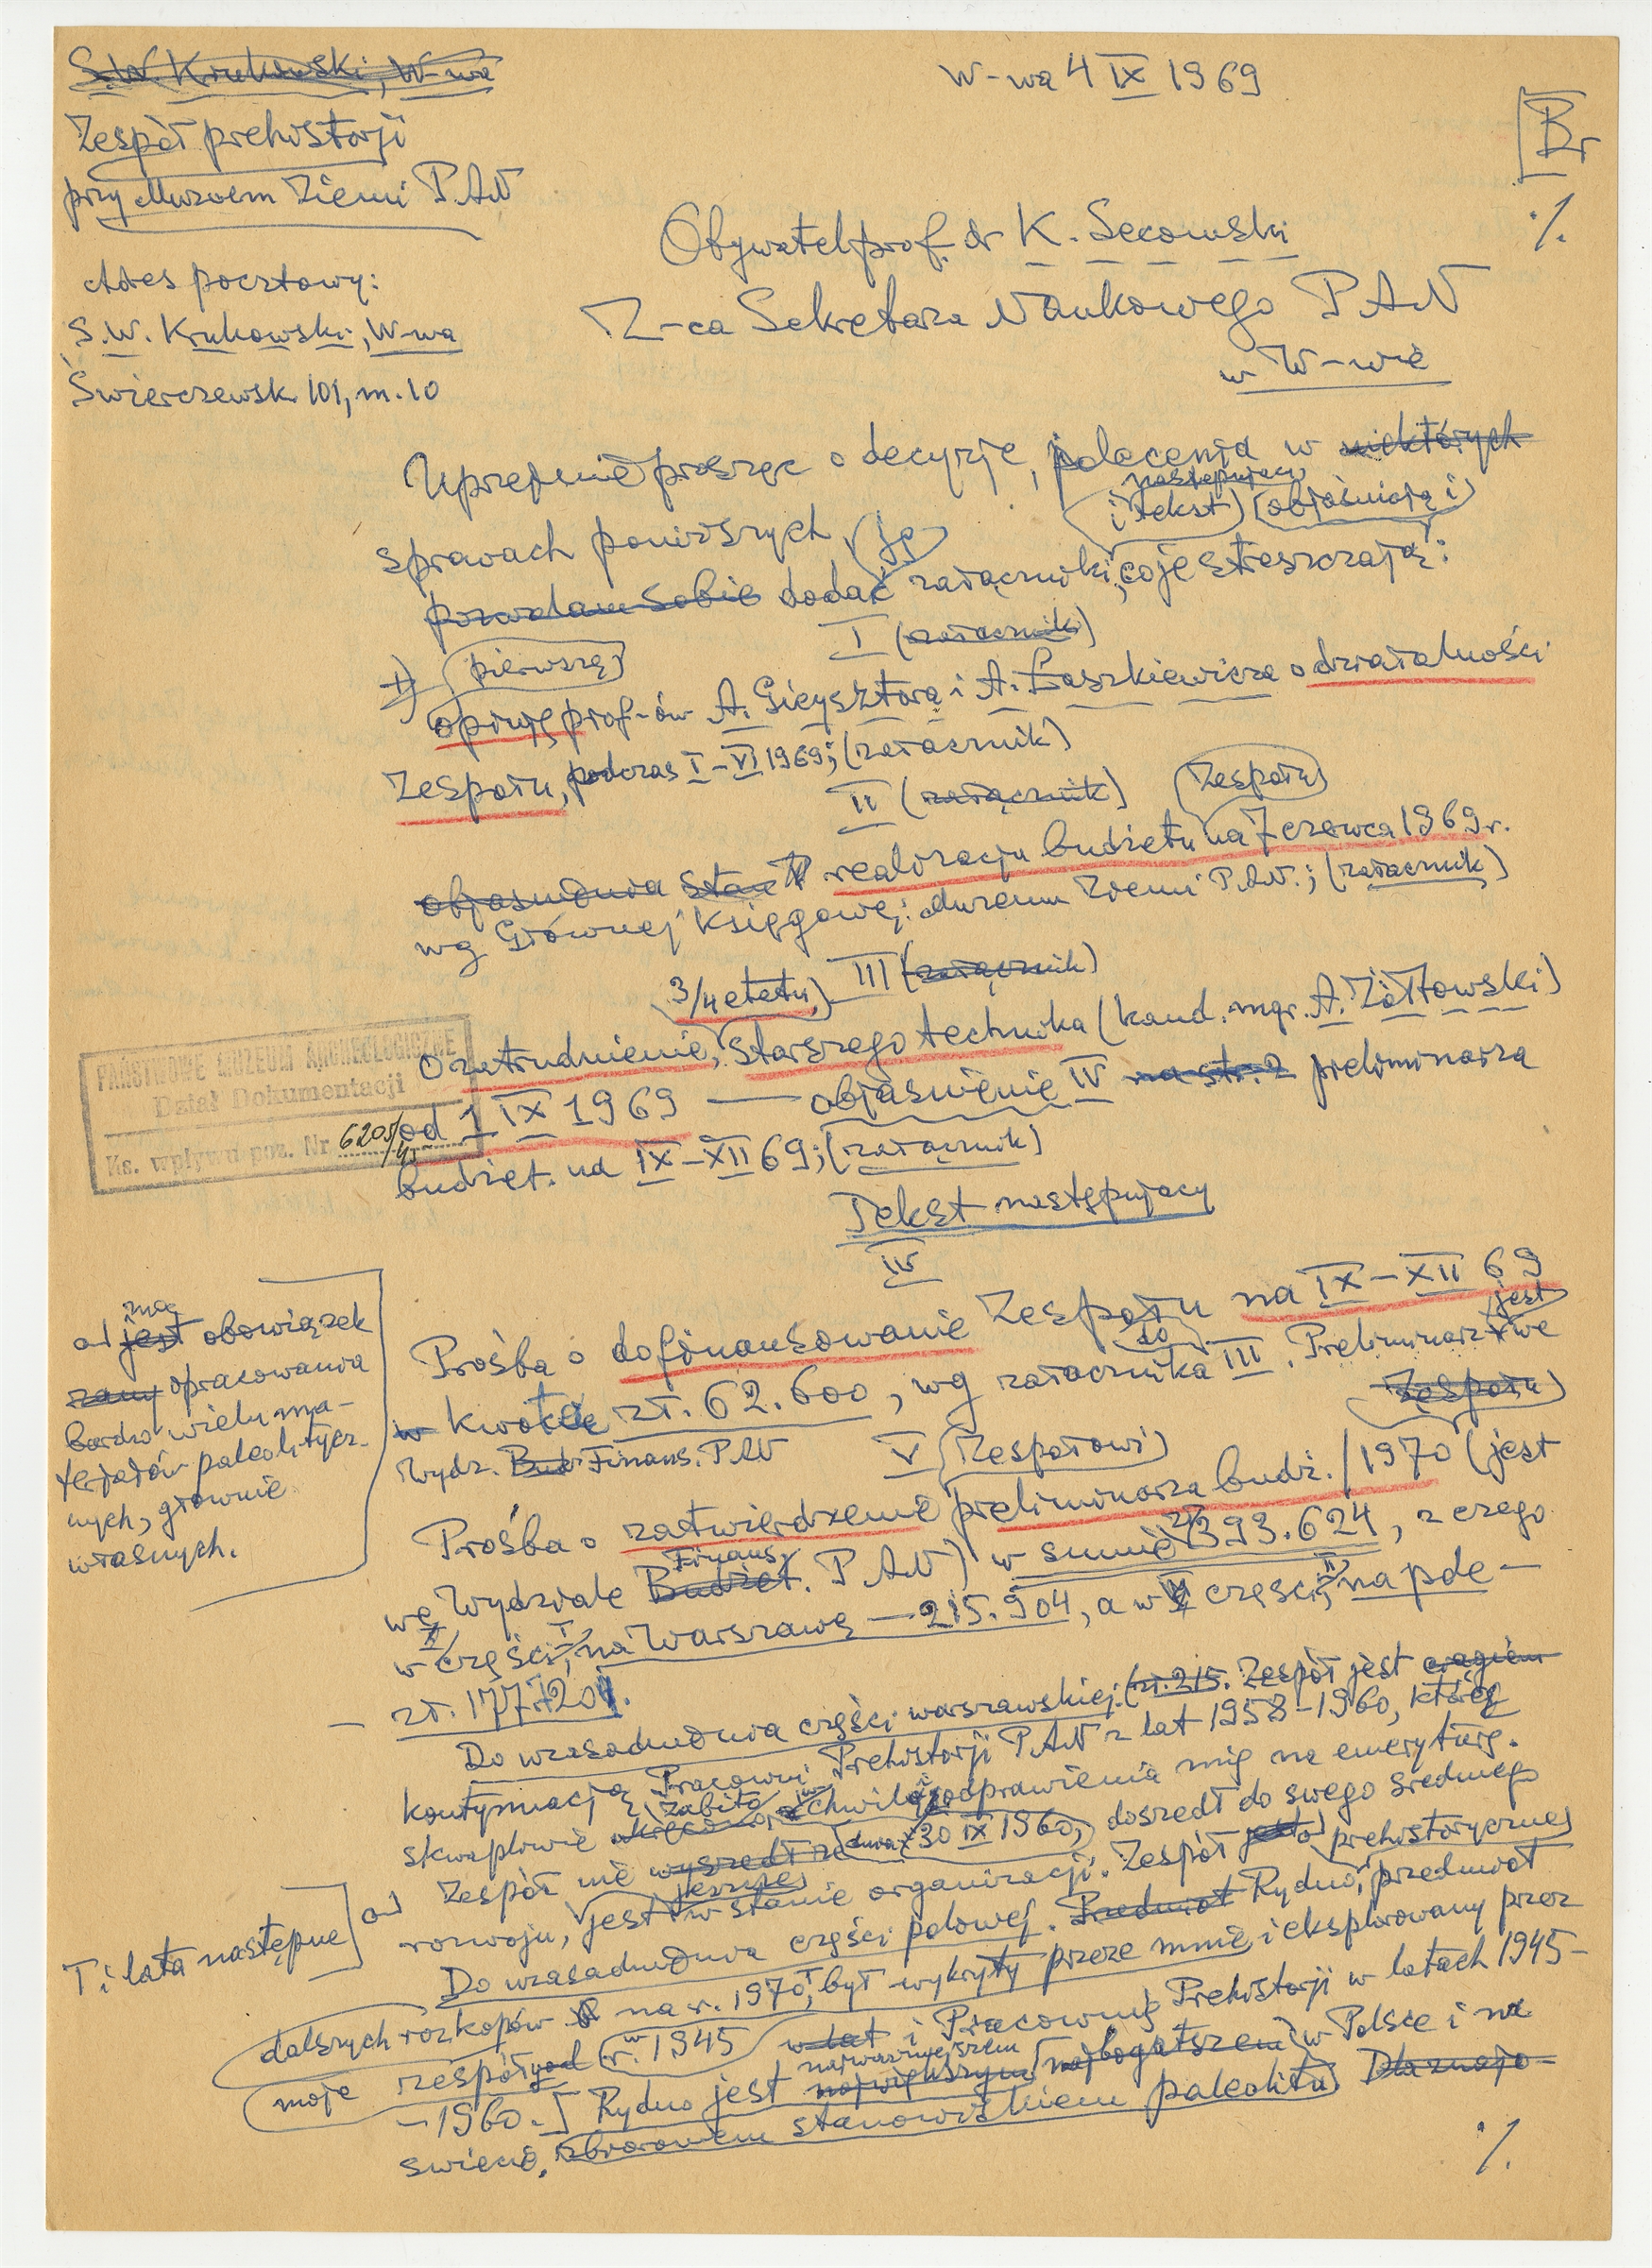 S.W. Krukowski, W-wa
W-wa 4 IX 1969
Zespół prehistorji
przy Muzeum Ziemi P.A.N
Br
%
Adres pocztowy:
S.W. Krukowski, W-wa
Świerczewsk. 101, m. 10
Obywatel prof. dr K. Secomski
Z-ca Sekretarza Naukowego P A N
w W-wie
Uprzejmie proszę o decyzje, polecenia w niektórych
sprawach poniższych
i tekst następujący objaśniają i
pozwalam sobie dodać załączniki, co je streszczają:
I (załącznik)
1) pierwszą
opinję prof-ów A. Gieysztora i A. Łaszkiewicza o działalności
Zespołu, podczas I-VI 1969; (załącznik)
II (załącznik) Zespołu
objaśnienia stan realizacja budżetu na 7 czerwca 1969 r.
wg Głównej Księgowej Muzeum Ziemi P.A.N.; (załącznik)
3/4 etatu, III (załącznik)
O zatrudnienie, starszego technika (kand. mgr. A. Żółtowski)
od 1 IX 1969 — objaśnienie IV na str. 2 preliminarza
budżet. na IX-XII 69; (załącznik)
PAŃSTWOWE MUZEUM ARCHEOLOGICZNE
Dział Dokumentacji
Ks. wpływu poz. Nr 6205/
Tekst następujący
IV
Prośba o dofinansowanie Zespołu na IX-XII 69
w kwocie zł. 62.600, wg załącznika do III. Preliminarz jest we
Wydz. Bud Finans. PAN
V Zespołowi Zespołu
Prośba o zatwierdzenie preliminarza budż. /1970 (jest
we Wydziale Budżet. Finans. P A N) w sumie 393.624, z czego
w części I, na Warszawę — 215.904, a w części II, na pole —
— zł. 177.720.
ma
jest obowiązek
opracowania
bardzo wielu ma-
terjałów paleolitycz-
nych, głównie
własnych.
Do uzasadnienia części warszawskiej. (zł. 215. Zespół jest
kontynuacją Pracowni Prehistorji PAN z lat 1958-1960, którą
skwapliwie zabito chwilą odprawienia mię na emeryturę.
Zespół nie wyszedł dnia (30 IX 1960), doszedł do swego średniego
rozwoju, jest jeszcze w stanie organizacji. Zespół prehistoryczne
T i lata następne
Do uzasadnienia części polowej. Przedmiot Rydno, przedmiot
dalszych rozkopów na r. 1970, był wykryty przeze mnie i eksplorowany przez
moje zespoły od w r. 1945 w lat i Pracownię Prehistorji w latach 1945-
-1960. Rydno jest największym najważniejszem najbogatszem w Polsce i na
świecie, zbiorowem stanowiskiem paleolitu. Dla znajo-
%